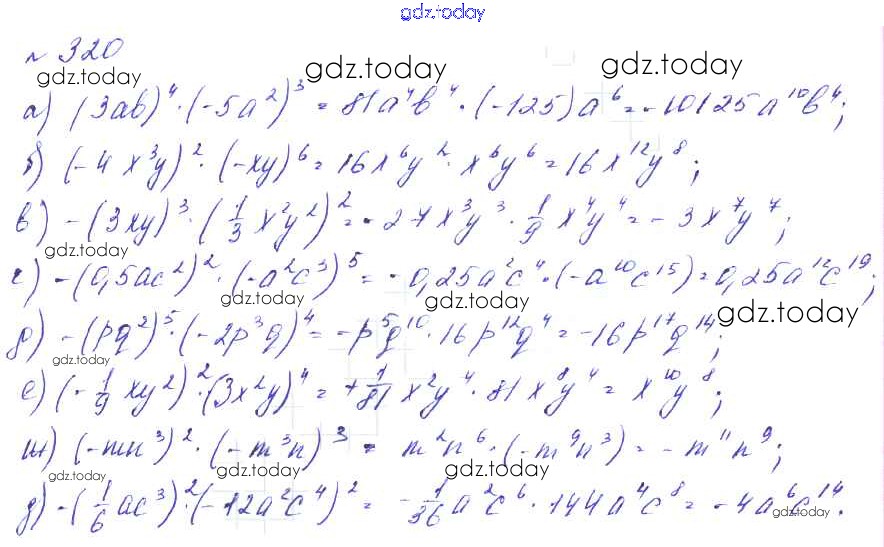 gdz.today
№ 320
gdz.today gdz.today gdz.today
а) (3ab)⁴·(-5a²)³ = 81a⁴b⁴·(-125)a⁶ = -10125a¹⁰b⁴;
gdz.today gdz.today
б) (-4x³y)²·(-xy)⁶ = 16x⁶y²·x⁶y⁶ = 16x¹²y⁸;
в) -(3xy)³·(1/3 x²y²)² = -27x³y³·1/9 x⁴y⁴ = -3x⁷y⁷;
gdz.today gdz.today
г) -(0,5ac²)²·(-a²c³)⁵ = -0,25a²c⁴·(-a¹⁰c¹⁵) = 0,25a¹²c¹⁹;
gdz.today gdz.today gdz.today
д) -(pq²)⁵·(-2p³q)⁴ = -p⁵q¹⁰·16p¹²q⁴ = -16p¹⁷q¹⁴;
gdz.today
е) (-1/9 xy²)²·(3x²y)⁴ = +1/81 x²y⁴·81x⁸y⁴ = x¹⁰y⁸;
ж) (-mn³)²·(-m³n)³ = m²n⁶·(-m⁹n³) = -m¹¹n⁹;
gdz.today gdz.today gdz.today
з) -(1/6 ac³)²·(-12a²c⁴)² = -1/36 a²c⁶·144a⁴c⁸ = -4a⁶c¹⁴.
gdz.today